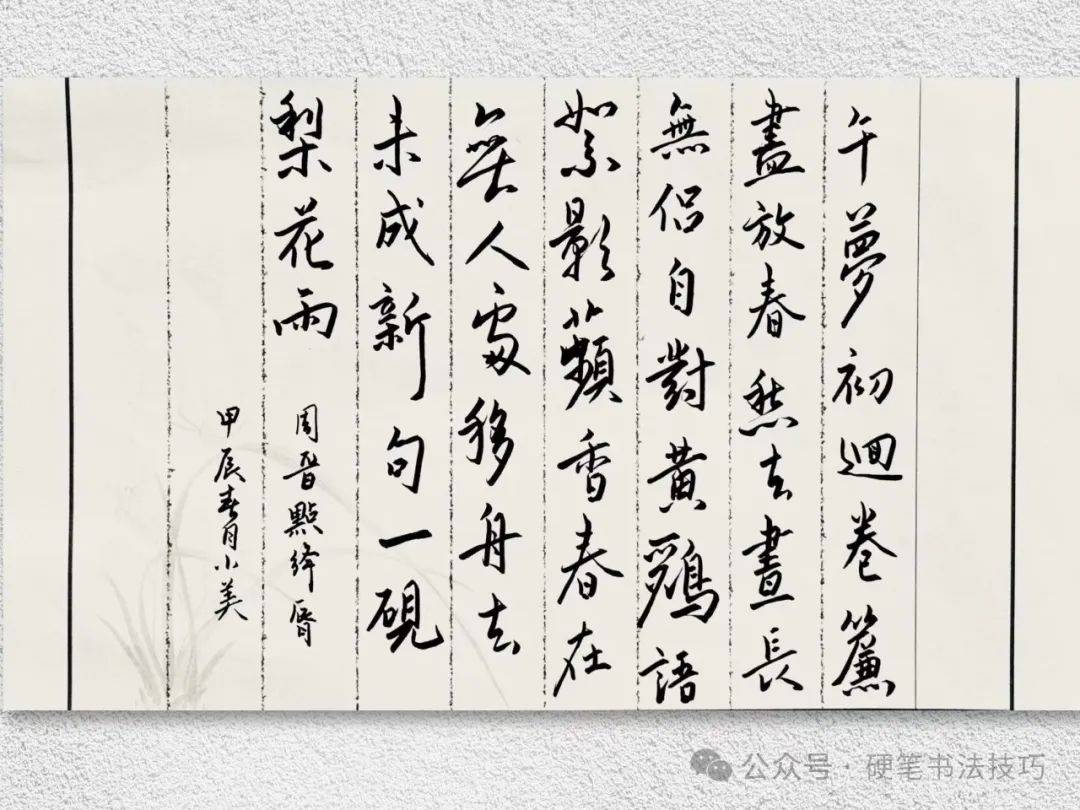 午夢初迴卷簾
盡放春愁去晝長
無侶自對黄鸝語
絮影蘋香春在
無人處移舟去
未成新句一硯
梨花雨
周晉點絳唇
甲辰春月小美
公众号·硬笔书法技巧